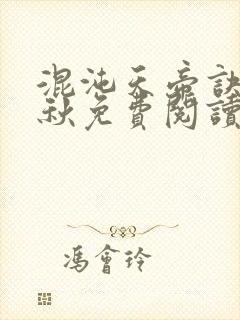 混沌天帝訣
秋免費閱讀
馮會玲